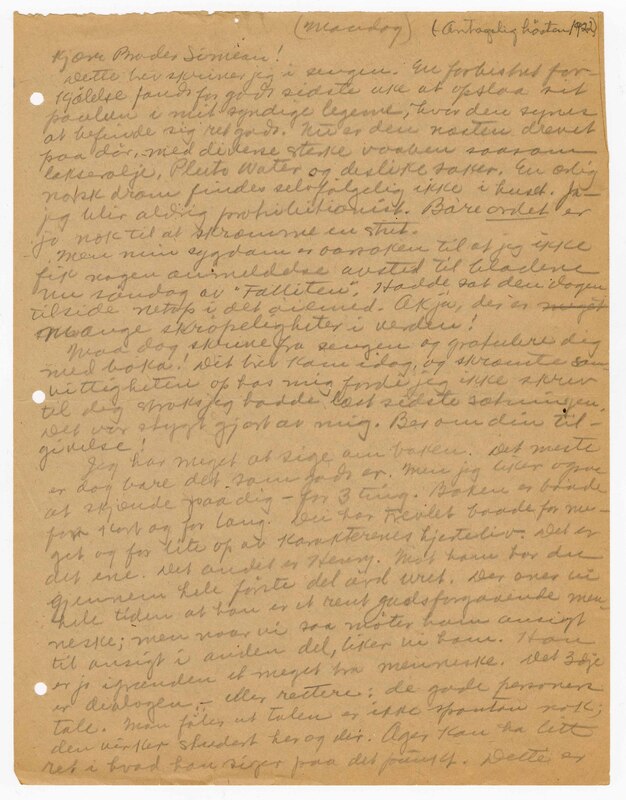 (Mandag) (Antagelig høsten 1922)
Kjære Broder Simeon!
Dette brev skriver jeg i sengen. En forbistret for-
kjølelse fandt for godt sidste uke at opslaa sit
paulun i mit syndige legeme, hvor den synes
at befinde sig ret godt. Nu er den næsten drevet
paa dør, med diverse sterke vaaben saasom
lakserolje, Pluto Water og deslike saker. En ærlig
norsk dram findes selvfølgelig ikke i huset. Ja-
jeg blir aldrig prohibitionist. Bare ordet er
jo nok til at skræmme en
Men min sygdom er aarsaken til at jeg ikke
fik nogen anmeldelse avsted til bladene
nu søndag av "Falliten". Hadde sat den dagen
tilside netop i det øiemed. Akja, der er meget
mange skrøpeligheter i verden!
Maa dog skrive fra sengen og gratulere dig
med boka! Dit brev kom idag, og skræmte sam-
vittigheten op hos mig fordi jeg ikke skrev
til dig straks jeg hadde læst sidste sætningen.
Det var stygt gjort av mig. Ber om din til-
givelse!
Jeg har meget at sige om boken. Det meste
er dog bare det som godt er. Men jeg liker ogsaa
at skjende paa dig – for 3 ting. Boken er baade
for kort og for lang. Du har trevlet baade for me-
get og for lite op av karakterenes hjerteliv. Det er
det ene. Det andet er Henry. Mot ham har du
gjennem hele første del øvd uret. Der aner vi
hele tiden at han er et rent gudsforgaaende men-
neske; men naar vi saa møter ham ansigt
til ansigt i anden del, liker vi ham. Han
er jo igrunden et meget bra menneske. Det 3dje
er dialogen – eller rettere: de gode personers
tale. Man føler at talen er ikke spontan nok;
den virker studert her og der. Ager kan ha litt
ret i hvad han siger paa det punkt. Dette er